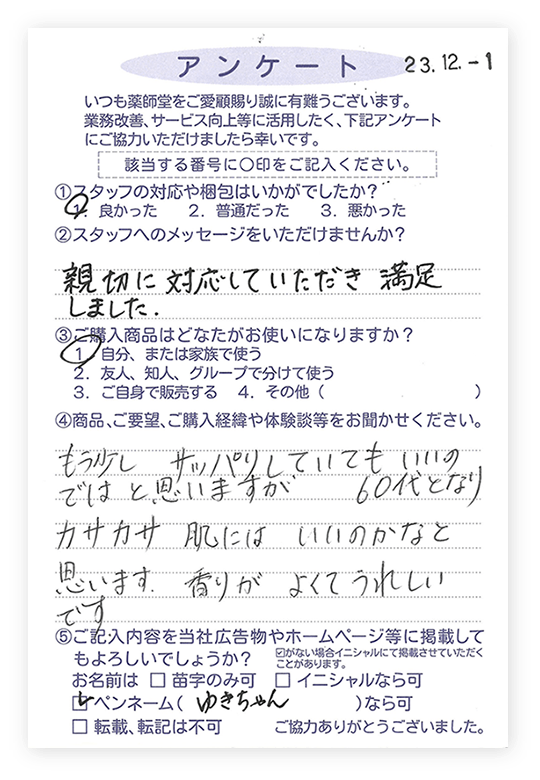 アンケート
23.12.-1
いつも薬師堂をご愛顧賜り誠に有難うございます。
業務改善、サービス向上等に活用したく、下記アンケート
にご協力いただけましたら幸いです。
該当する番号に〇印をご記入ください。
①スタッフの対応や梱包はいかがでしたか？
1. 良かった 2. 普通だった 3. 悪かった
②スタッフへのメッセージをいただけませんか？
親切に対応していただき 満足
しました.
③ご購入商品はどなたがお使いになりますか？
1. 自分、または家族で使う
2. 友人、知人、グループで分けて使う
3. ご自身で販売する 4. その他（ ）
④商品、ご要望、ご購入経緯や体験談等をお聞かせください。
もう少し サッパリしていても いいの
では と思いますが 60代となり
カサカサ 肌には いいのかなと
思います. 香りが よくてうれしい
です
⑤ご記入内容を当社広告物やホームページ等に掲載して
もよろしいでしょうか？
☑がない場合イニシャルにて掲載させていただく
ことがあります。
お名前は □ 苗字のみ可 □ イニシャルなら可
☑ペンネーム（ ゆきちゃん ）なら可
□ 転載、転記は不可 ご協力ありがとうございました。